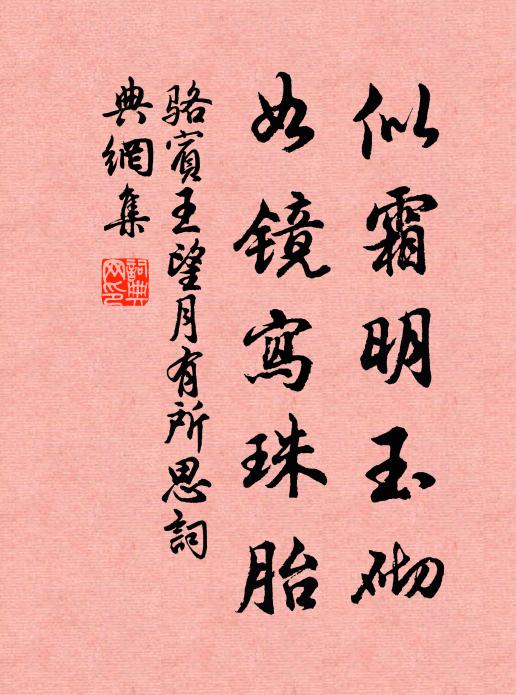 似霜明玉砌
如镜寫珠胎
骆賓王望月有所思詞
典網集
詞典
网印